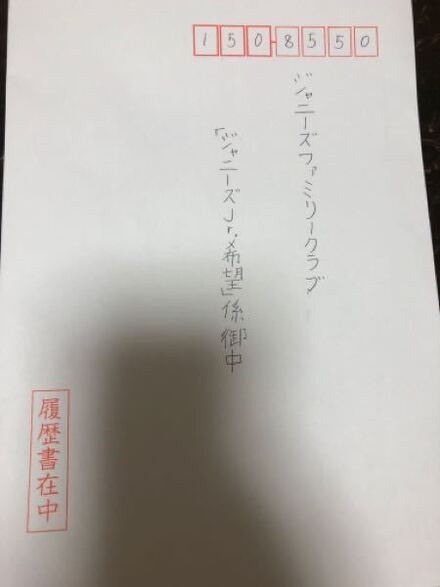 150-8550
ジャニーズファミリークラブ
「ジャニーズJr.希望」係御中
履歴書在中